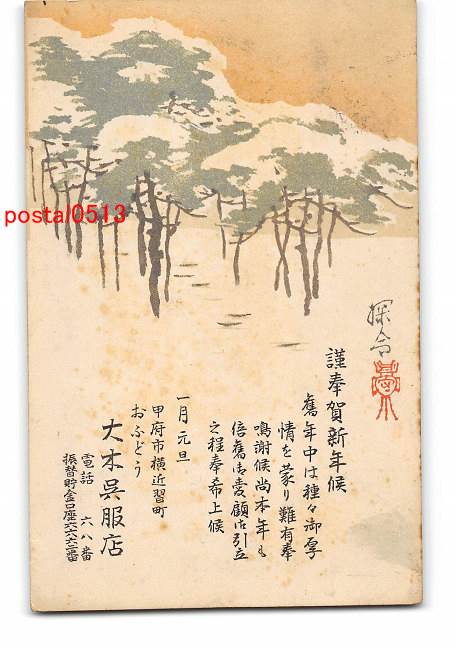 謹奉賀新年候
舊年中は種々御厚
情を蒙り難有奉
鳴謝候尚本年も
倍舊御愛顧御引立
之程奉希上候
一月元旦
甲府市横近習町
おふどう
大木呉服店
電話 六八番
振替貯金口座六六六二番
探令
posta/0513